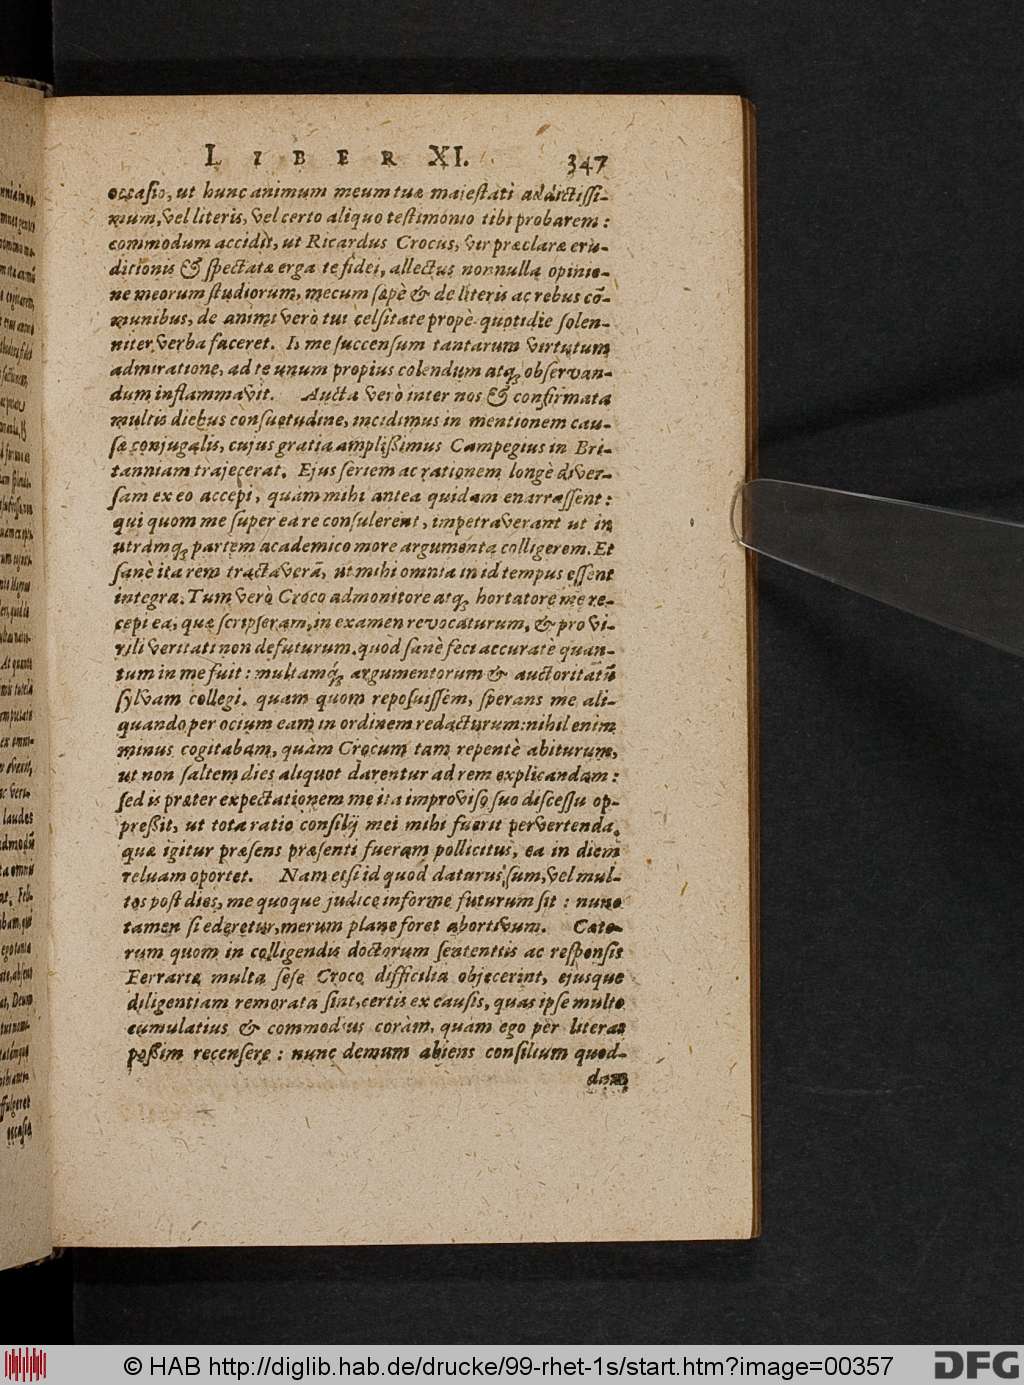 LIBER XI. 347
occasio, ut hunc animum meum tuæ majestati addictissi-
mum, vel literis, vel certo aliquo testimonio tibi probarem:
commodum accidit, ut Ricardus Crocus, vir præclaræ eru-
ditionis & spectatæ erga te fidei, allectus nonnulla opinio-
ne meorum studiorum, mecum sæpè & de literis ac rebus cō-
munibus, de animi verò tui celsitate propè quotidie solen-
niter verba faceret. Is me succensum tantarum virtutum
admiratione, ad te unum propius colendum atq; observan-
dum inflammavit. Aucta verò inter nos & confirmata
multis diebus consuetudine, incidimus in mentionem cau-
sæ conjugalis, cujus gratia amplißimus Campegius in Bri-
tanniam trajecerat. Ejus seriem ac rationem longè diver-
sam ex eo accepi, quàm mihi antea quidam enarrassent:
qui quom me super ea re consulerent, impetraverant ut in
utramq; partem academico more argumenta colligerem. Et
sanè ita rem tractaverā, ut mihi omnia in id tempus essent
integra. Tum verò Croco admonitore atq; hortatore me re-
cepi ea, quæ scripseram, in examen revocaturum, & pro vi-
rili veritati non defuturum. quòd sanè feci accuratè quan-
tum in me fuit: multamq́; argumentorum & auctoritatū
sylvam collegi. quam quom reposuissem, sperans me ali-
quando per ocium eam in ordinem redacturum: nihil enim
minus cogitabam, quàm Crocum tam repentè abiturum,
ut non saltem dies aliquot darentur ad rem explicandam:
sed is præter expectationem me ita improviso suo discessu op-
preßit, ut tota ratio consilij mei mihi fuerit pervertenda.
quæ igitur præsens præsenti fueram pollicitus, ea in diem
reluam oportet. Nam etsi id quod daturus sum, vel mul-
tos post dies, me quoque judice informe futurum sit: nunc
tamen si ederetur, merum plane foret abortivum. Cæte-
rum quom in colligendis doctorum sententiis ac responsis
Ferrariæ multa sese Croco difficilia objecerint, ejusque
diligentiam remorata sint, certis ex causis, quas ipse multo
cumulatius & commodius coràm, quàm ego per literas
poßim recensere: nunc demum abiens consilium quod-
dam
occasio
© HAB http://diglib.hab.de/drucke/99-rhet-1s/start.htm?image=00357
DFG